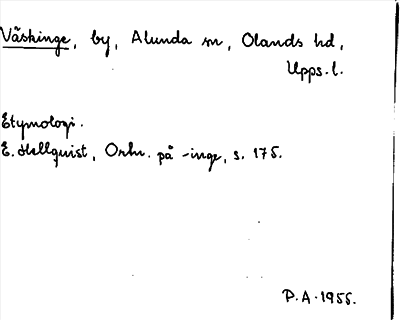 Väskinge, by, Alunda sn, Olands hd,
Upps. l.
Etymologi.
E. Hellquist, Ortn. på -inge, s. 175.
P.A. 1956.